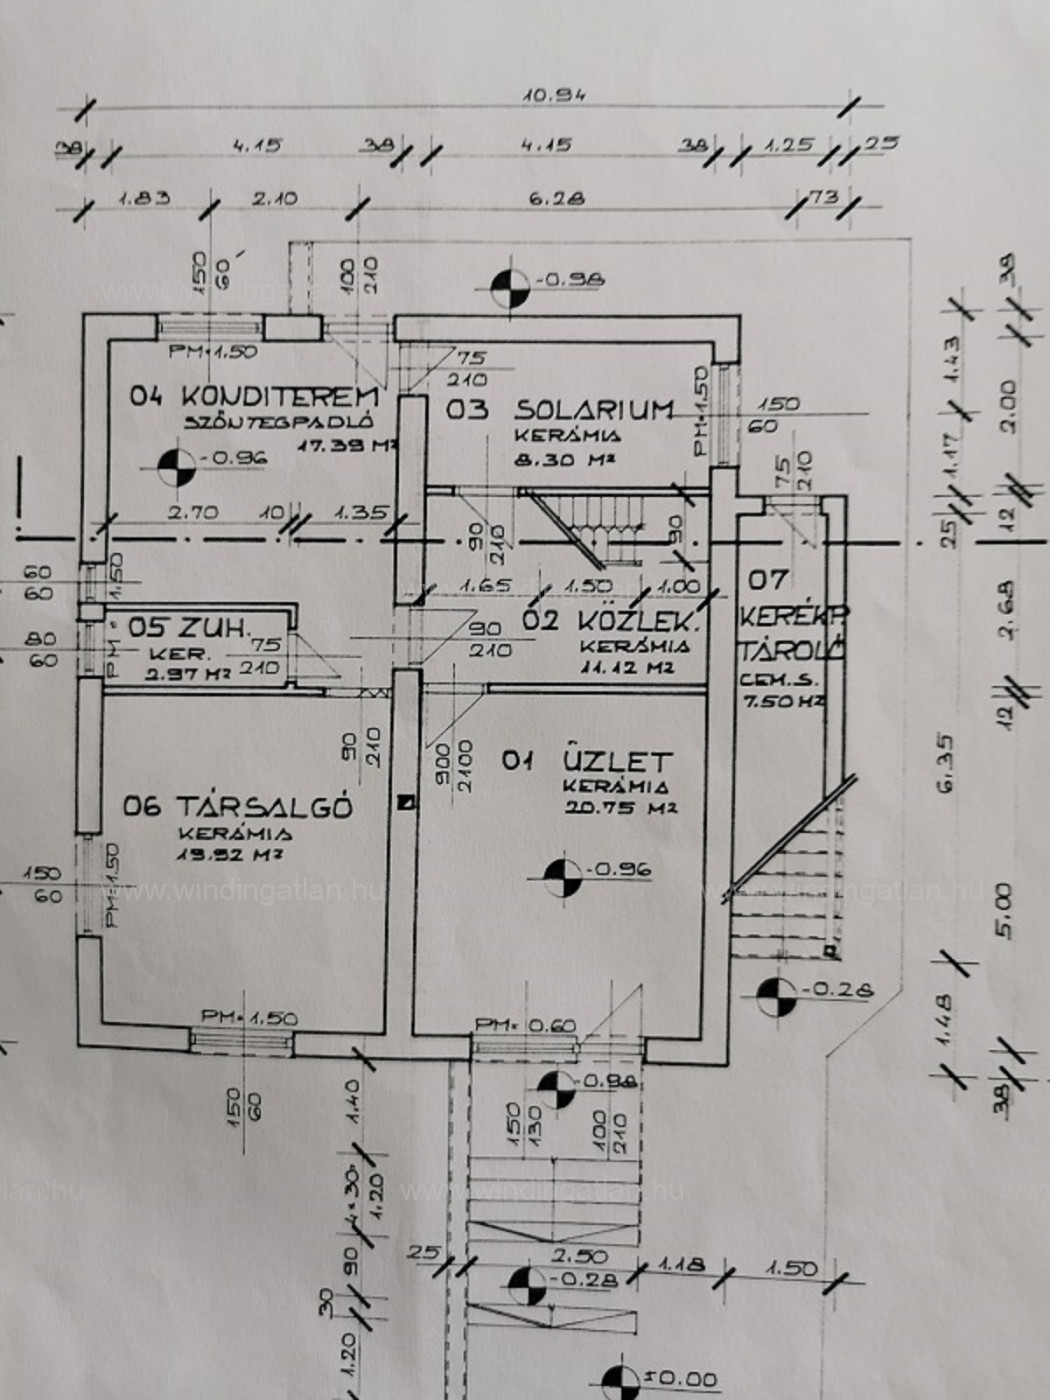 10.94
38 4.15 38 4.15 38 1.25 25
1.83 2.10 6.28 73
150
60
100
210
-0.98
PM=1.50
75
210
04 KONDITEREM
SZŐNYEGPADLÓ
17.39 M²
-0.96
03 SOLARIUM
KERÁMIA
8.30 M²
PM=1.50
150
60
75
210
38
1.43
2.00
1.17
25
12
2.70 10 1.35
90
210
90
1.65 1.50 1.00
60
60
1.50
80
60
PM=
05 ZUH.
KER.
2.97 M²
75
210
90
210
02 KÖZLEK.
KERÁMIA
11.12 M²
07
KERÉKP.
TÁROLÓ
CEM.S.
7.50 M²
2.68
12
90
210
900
2100
01 ÜZLET
KERÁMIA
20.75 M²
06 TÁRSALGÓ
KERÁMIA
19.92 M²
6.35
150
60
PM=1.50
-0.96
www.windingatlan.hu
www.windingatlan.hu
5.00
-0.28
PM=1.50
PM= 0.60
1.48
38
150
60
-0.98
150
130
100
210
1.40
4×30
1.20
lan.hu
www.windingatlan.hu
90
30
1.20
25 2.50 1.18 1.50
-0.28
±0.00